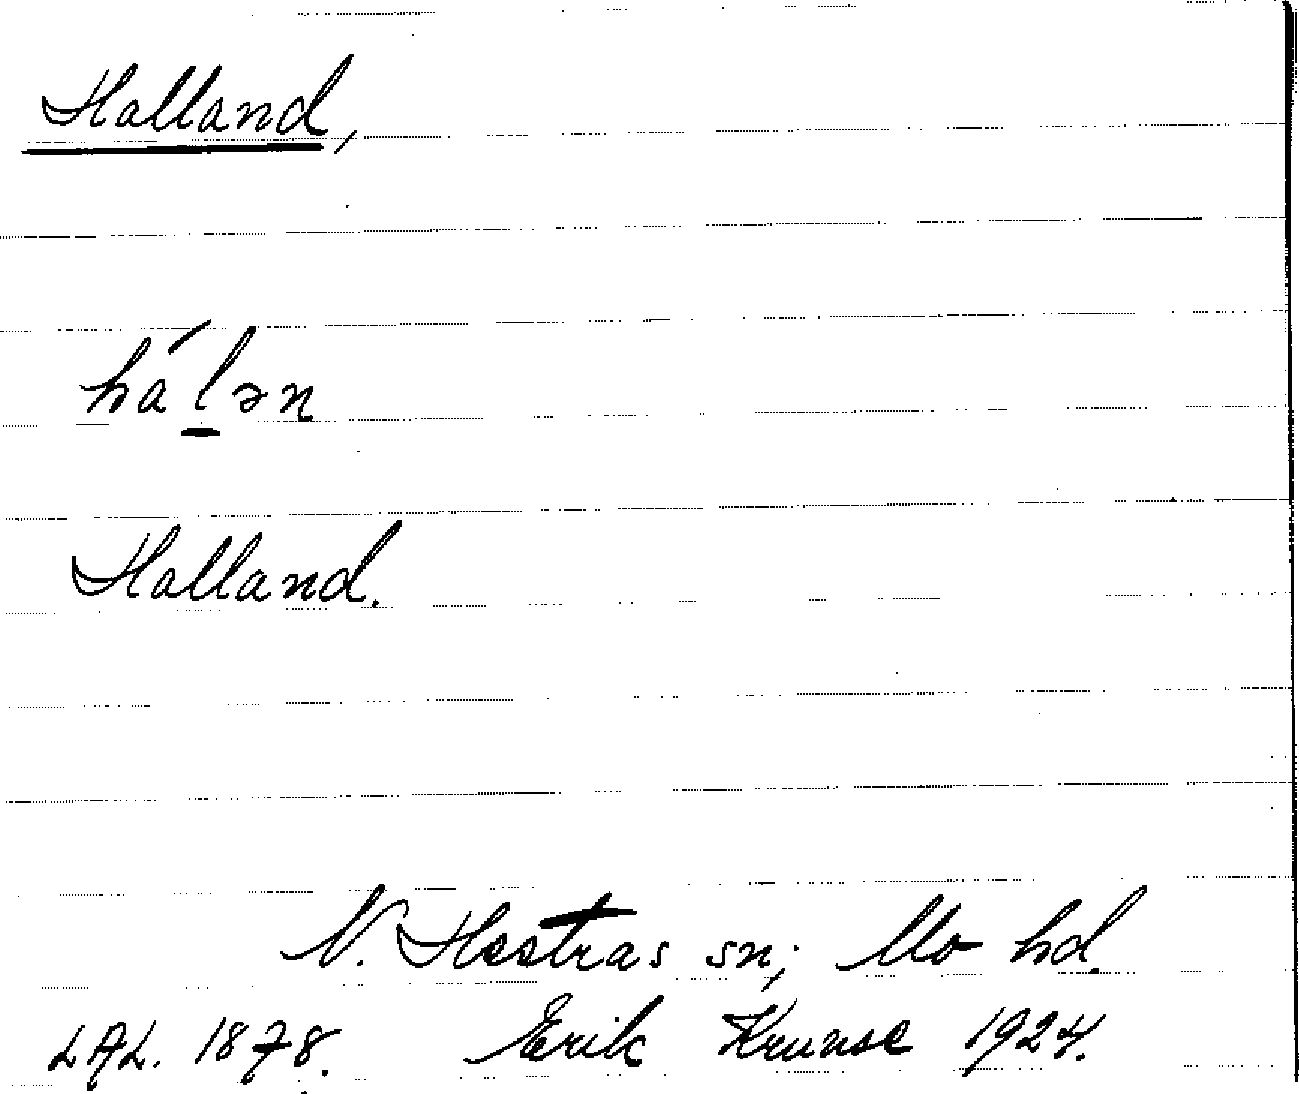 Halland,
há̱lən
Halland.
N. Hestras sn; Mo hd.
LAL. 1878. Erik Krunse 1924.